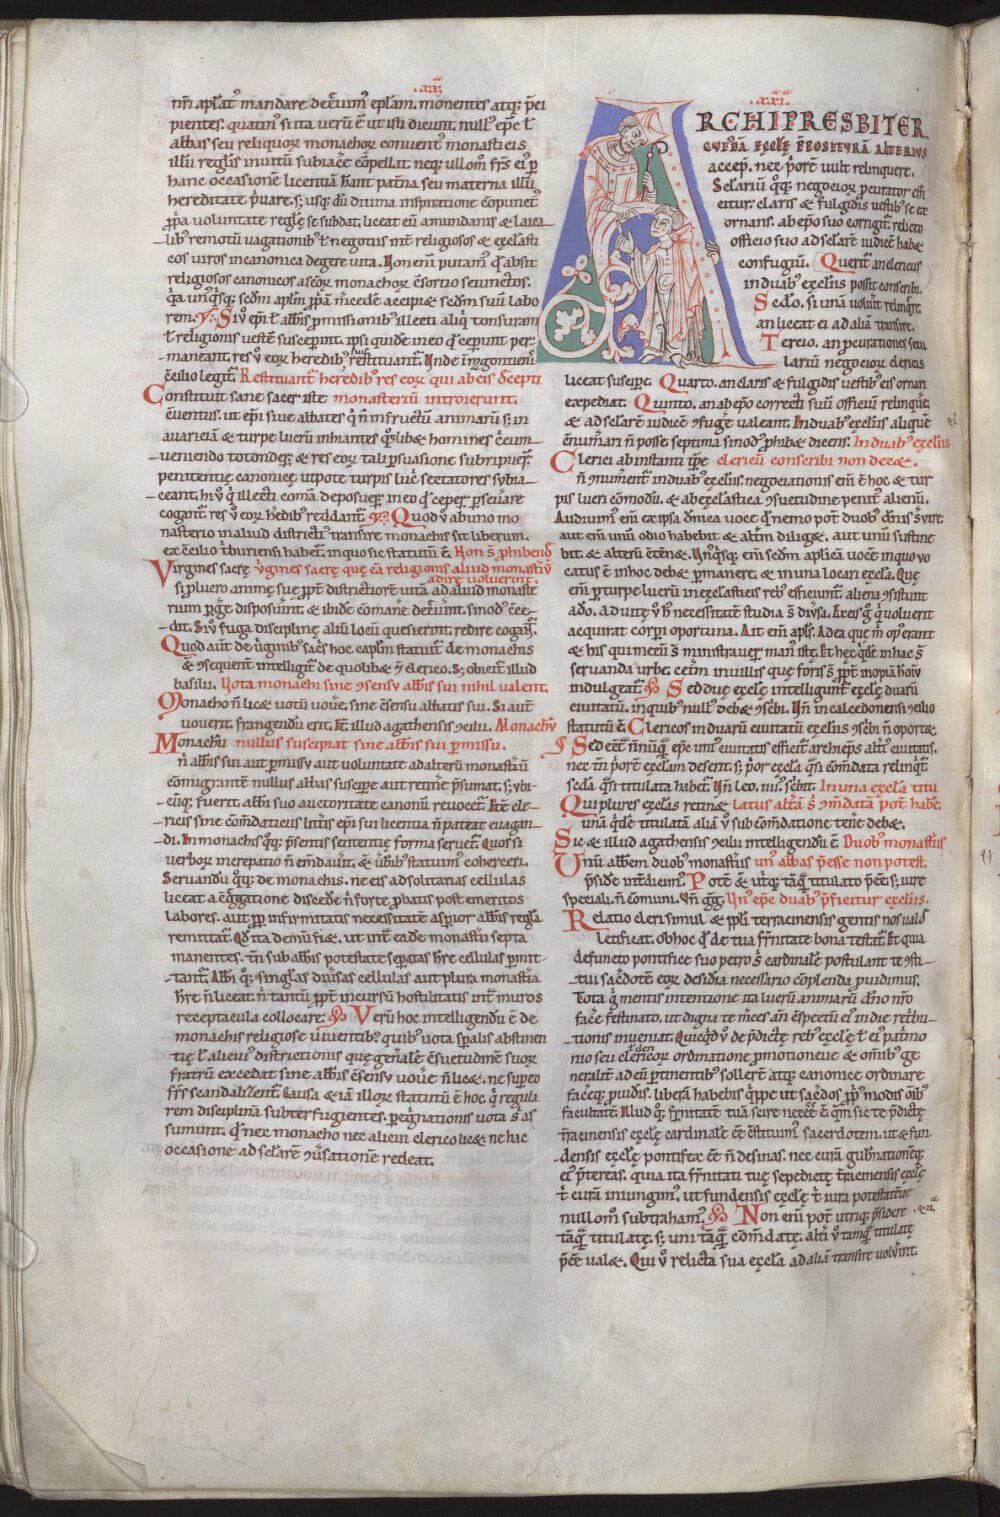 .xx.
nr̄i apl̄at' mandare decreuim' eplām. monentes atq; p̄ci
pientes. quatin' si ita uerū ē ut isti dicunt. null' epc̄ ł
abbas seu reliquor monachor conuent' monasteris
illū reglis inuitū subiacē cōpellat. neq; ullom̄ frīs ei' p
hanc occasionē licentiā hn̄t patna seu materna illū
hereditate p̄uare. s; usq; dū diuina inspiratione cōpunct'
p̄p̄a uoluntate reglę se subdat. liceat eū a mundanis & laica
lib' remotū uagationib' ł negotiis int̄ religiosos & ęcclasti
cos uiros in canonica degere uita. Non eni putam' qd absit
religiosos canonicos a scōr monachor cōsortio seiunctos.
q̄a unq̄sq; scdm aplm̄ p̄p̄ā m̄cedē accipi& scdm suū labo
rem. Siū epi ł abbis pmissionib' illecti aliq̄ tonsuram
ł religionis uestē susceperint. ipsi quidē in eo qd ceperunt per
maneant. res ū eor heredib' restituant̄. Unde in mogontiensi
cc̄ilio legit̄. Restituant̄ heredib' res eor qui ab eis decepti
Constituit sane sacer iste monasteriū introierunt.
cuentus. ut epi siue abbates q̄ n̄ in fructū animarū s; in
auariciā & turpe lucrū inhiantes q̄slib& homines cc̄um
ueniendo totonder; & res eor tali psuasione subripuer;
penitentię canonicę utpote turpis lucri sectatores subia
ceant. hi ū q̄ illecti comā deposuer; in eo qd ceper; pseuare
cogant̄. res ū eor hedib' reddant̄. Quod ū ab uno mo
nasterio in aliud districti' transire monachis sit liberum.
ex cc̄ilio tburiensi habet̄. in quo sic statutū ē. Non ē phibend'
Virgines sacrę uirgines sacrę que cā religionis aliud monasteriū
adire uoluerint.
si p lucro animę suę p̄pt̄ districtiorē uitā ad aliud monaste
rium p̄gere disposuīt. & ibidē cōmanē decreūint. sinod' ccc̄e
dit. Si ū fuga disciplinę aliū locū quesierint. redire cogant̄.
Quod aut̄ de uginib' sacris hoc caplm̄ statuit de monachis
& consequent intelligit̄ de quolib& clerico. S; obicit̄ illud
basilii. Nota monachi sine consensu abbis sui nihil ualent.
Monacho n̄ lic& uotū uouē. sine cc̄sensu abbatis sui. Si aut̄
uouerit. frangendū erit. Et illud agathensis cc̄ilii. Monachū
Monachū nullus suscipiat sine abbis sui pmissu.
n̄ abbis sui aut pmissu aut uoluntate ad alterū monasteriū
cōmigrantē nullus abbas suscipe aut retinē p̄sumat. s; ubi
cūq; fuerit. abbi suo auctoritate canonū reuocet̄. Itē cle
ricis sine cōmdaticiis litt̄is epi sui licentia n̄ pateat euagan
di. In monachis q̄q; p̄sentis sententię forma seruet̄. Quos si
uerbor increpatio n̄ emdauit̄. & uerib' statuim' coherceri.
Seruandū q̄q; de monachis. ne eis ad solitarias cellulas
liceat a cc̄gregatione discedē n̄ forte pbatis post emeritos
labores. aut pp̄ infirmitatis necessitatē asperior abbis regla
remittat̄. Qd ita demū fi&. ut int̄ eadē monasterii septa
manentes. tn̄ sub abbis potestate sepatas hr̄e cellulas pmit
tant̄. Abbi q̄; singlas diūsas cellulas aut plura monastia
hr̄e n̄ liceat. n̄ tantū p̄pt̄ incursū hostilitatis int̄ muros
receptacula collocare. Verū hoc intelligendū ē de
monachis religiose uiuentib'. quib' uota spalis abstinen
tię ł alicui' districtionis que gen̄alē cc̄suetudinē suor
fratrū excedat sine abbis cc̄sensu uouē n̄ lic&. ne su peo
frs̄ scandalizent̄. Causa & iā illor statuitur ē hoc. q̄ regula
rem disciplinā subterfugientes. peḡnationis uota s̄ as
sumunt. qd nec monacho nec alicui clerico lic& ne hac
occasione ad sclarē conūsationē redeat.
.xxi.
ARCHIPRESBITER
CUIUSDĀ ĘCCLĘ P̄POSITURĀ ALTERIUS
accep. nec p̄orē uult relinquere.
Sclariū q̄q; negocior pcurator effi
citur. claris & fulgidis uestib' se ex
ornans. ab epo suo corrigit̄. relicto
officio suo ad sclarē iudicē hab&
confugiū. Querit̄ an clericus
in duab' ęccl̄iis possit conscribi.
Secdo. si unā uoluerit relinq̄re.
an liceat ei ad aliā transire.
Tercio. an pcurationes secu
lariū negocior clericis
liceat suscipe. Quarto. an claris & fulgidis uestib' eis ornari
expediat. Quinto. an ab epo correcti suū officiū relinq̄e.
& ad sclarē iudicē confugē ualeant. In duab' ęccl̄iis aliquē
cc̄numari n̄ posse septima sinod' phib& dicens. In duab' ęccl̄iis
Clerici ab instanti tp̄e clericū conscribi non deb&.
n̄ connument̄ in duab' ęcclīis. negociationis eni ē hoc & tur
pis lucri cōmodū. & ab ęcclastica consuetudine penit' alienū.
Audiuim' eni ex ipsa dnica uoce. qd nemo pot̄ duob' dn̄is suire.
aut eni unū odio habebit & altm̄ dilig&. aut unū sustine
bit. & alterū cc̄tēn&. Unq̄sq; eni scdm aplicā uocē in quo uo
catus ē in hoc deb& pmanere. & in una locari ęccl̄a. Que
eni p turpe lucrū in ęcclasticis reb' efficiunt̄. aliena consistunt
a do. Ad uitę ū hui' necessitatē studia s̄t diūsa. Ex eis q̄ uoluerit
acquirat corpi oportuna. Ait eni apls. Ad ea que m̄ op' erant
& his qui mecū s̄t ministrauer; man' istę. Et hęc q̄dē in hac s̄
seruanda urbe. cet̄m in uillis que foris s̄t p̄pt̄ inopiā hoīm
indulgeat̄. Sed duę ęccl̄ę intelligunt̄ ęccl̄ę duarū
ciuitatū. in quib' null' deb& conscbi. Un̄ in calcedonensi cc̄ilio
statutū ē. Clericos in duarū ciuitatū ęccl̄iis conscbi n̄ oport&.
Sed ecc̄ n̄nūq̄ epc̄ uni' ciuitatis efficit̄ archiep̄s alt̄i' ciuitatis.
nec tn̄ p̄orē ęccl̄am deserit. s; p̄or ęccl̄a q̄si cōmdata relinq̄t̄.
scdā q̄si titulata habet̄. Un̄ leo .iiii. scbit. In una ęccl̄a titu
Qui plures ęccl̄as retin& latus altā s̄ commdatā pot̄ habē.
unā q̄dē titulatā. aliā ū sub cōmdatione tenē deb&.
Sic & illud agathensis cc̄ilii intelligendū ē. Duob' monastiis
Unū abbem duob' monastiis un' abbas p̄esse non potest.
p̄sidē int̄dicim'. Potē & utrq; tāq̄ titulato p̄ceēs; iure
speciali. n̄ comuni. Un̄ Greg̅. Un' epc̄ duab' p̄ficitur ęccl̄iis.
Relatio cleri simul & ppli terracinensis gentis nos ualde
letificat. ob hoc qd de tua frn̄itate bona testat̄. Et quia
defuncto pontifice suo petro s̄ cardinalē postulant te consti
tui sacdotē. eor desidia necessario cōplenda puidimus.
Tota q̄ mentis intentione ita lucrū animarū dn̄o nr̄o
facē festinato. ut digna te m̄ces an̄ cc̄spectū ei' in die retbu
tionis inueniat. Quicqd ū de p̄dictę reb' ęccl̄ę ł ei' pat̄mo
nio seu clericor ordinatione pmotionęue & om̄ib' ge
neralit̄ ad eū ptinentib' sollert̄ atq; canonicę ordinare
facęq; puidis. liberā habebis q̄ppe ut sacdos p̄p̄' modis oīb'
facultatē. Illud q̄; frn̄itatē tuā scire neccē ē q̄m sic te p̄dictę
tracinensis ęccl̄ę cardinalē cē cc̄stituim' sacerdotem. ut & fun
densis ęccl̄ę pontifex cē n̄ desinas. nec curā gub̄nationeq;
ei' p̄tereas. quia ita frn̄itati tuę sepedictę tracinensis ęccl̄ę
ł curā iniungim'. ut fundensis ęccl̄ę ł iura potestatēue
nullom̄ subtraham'. Non eni pot̄ utriq; p̄sidere
tāq̄ titulatę. s; uni tāq̄ cōmdatę. alt̄i ū tamq̄ titulatę
p̄cē ual&. Qui ū relicta sua ęccl̄a ad aliā transire uoluerit.